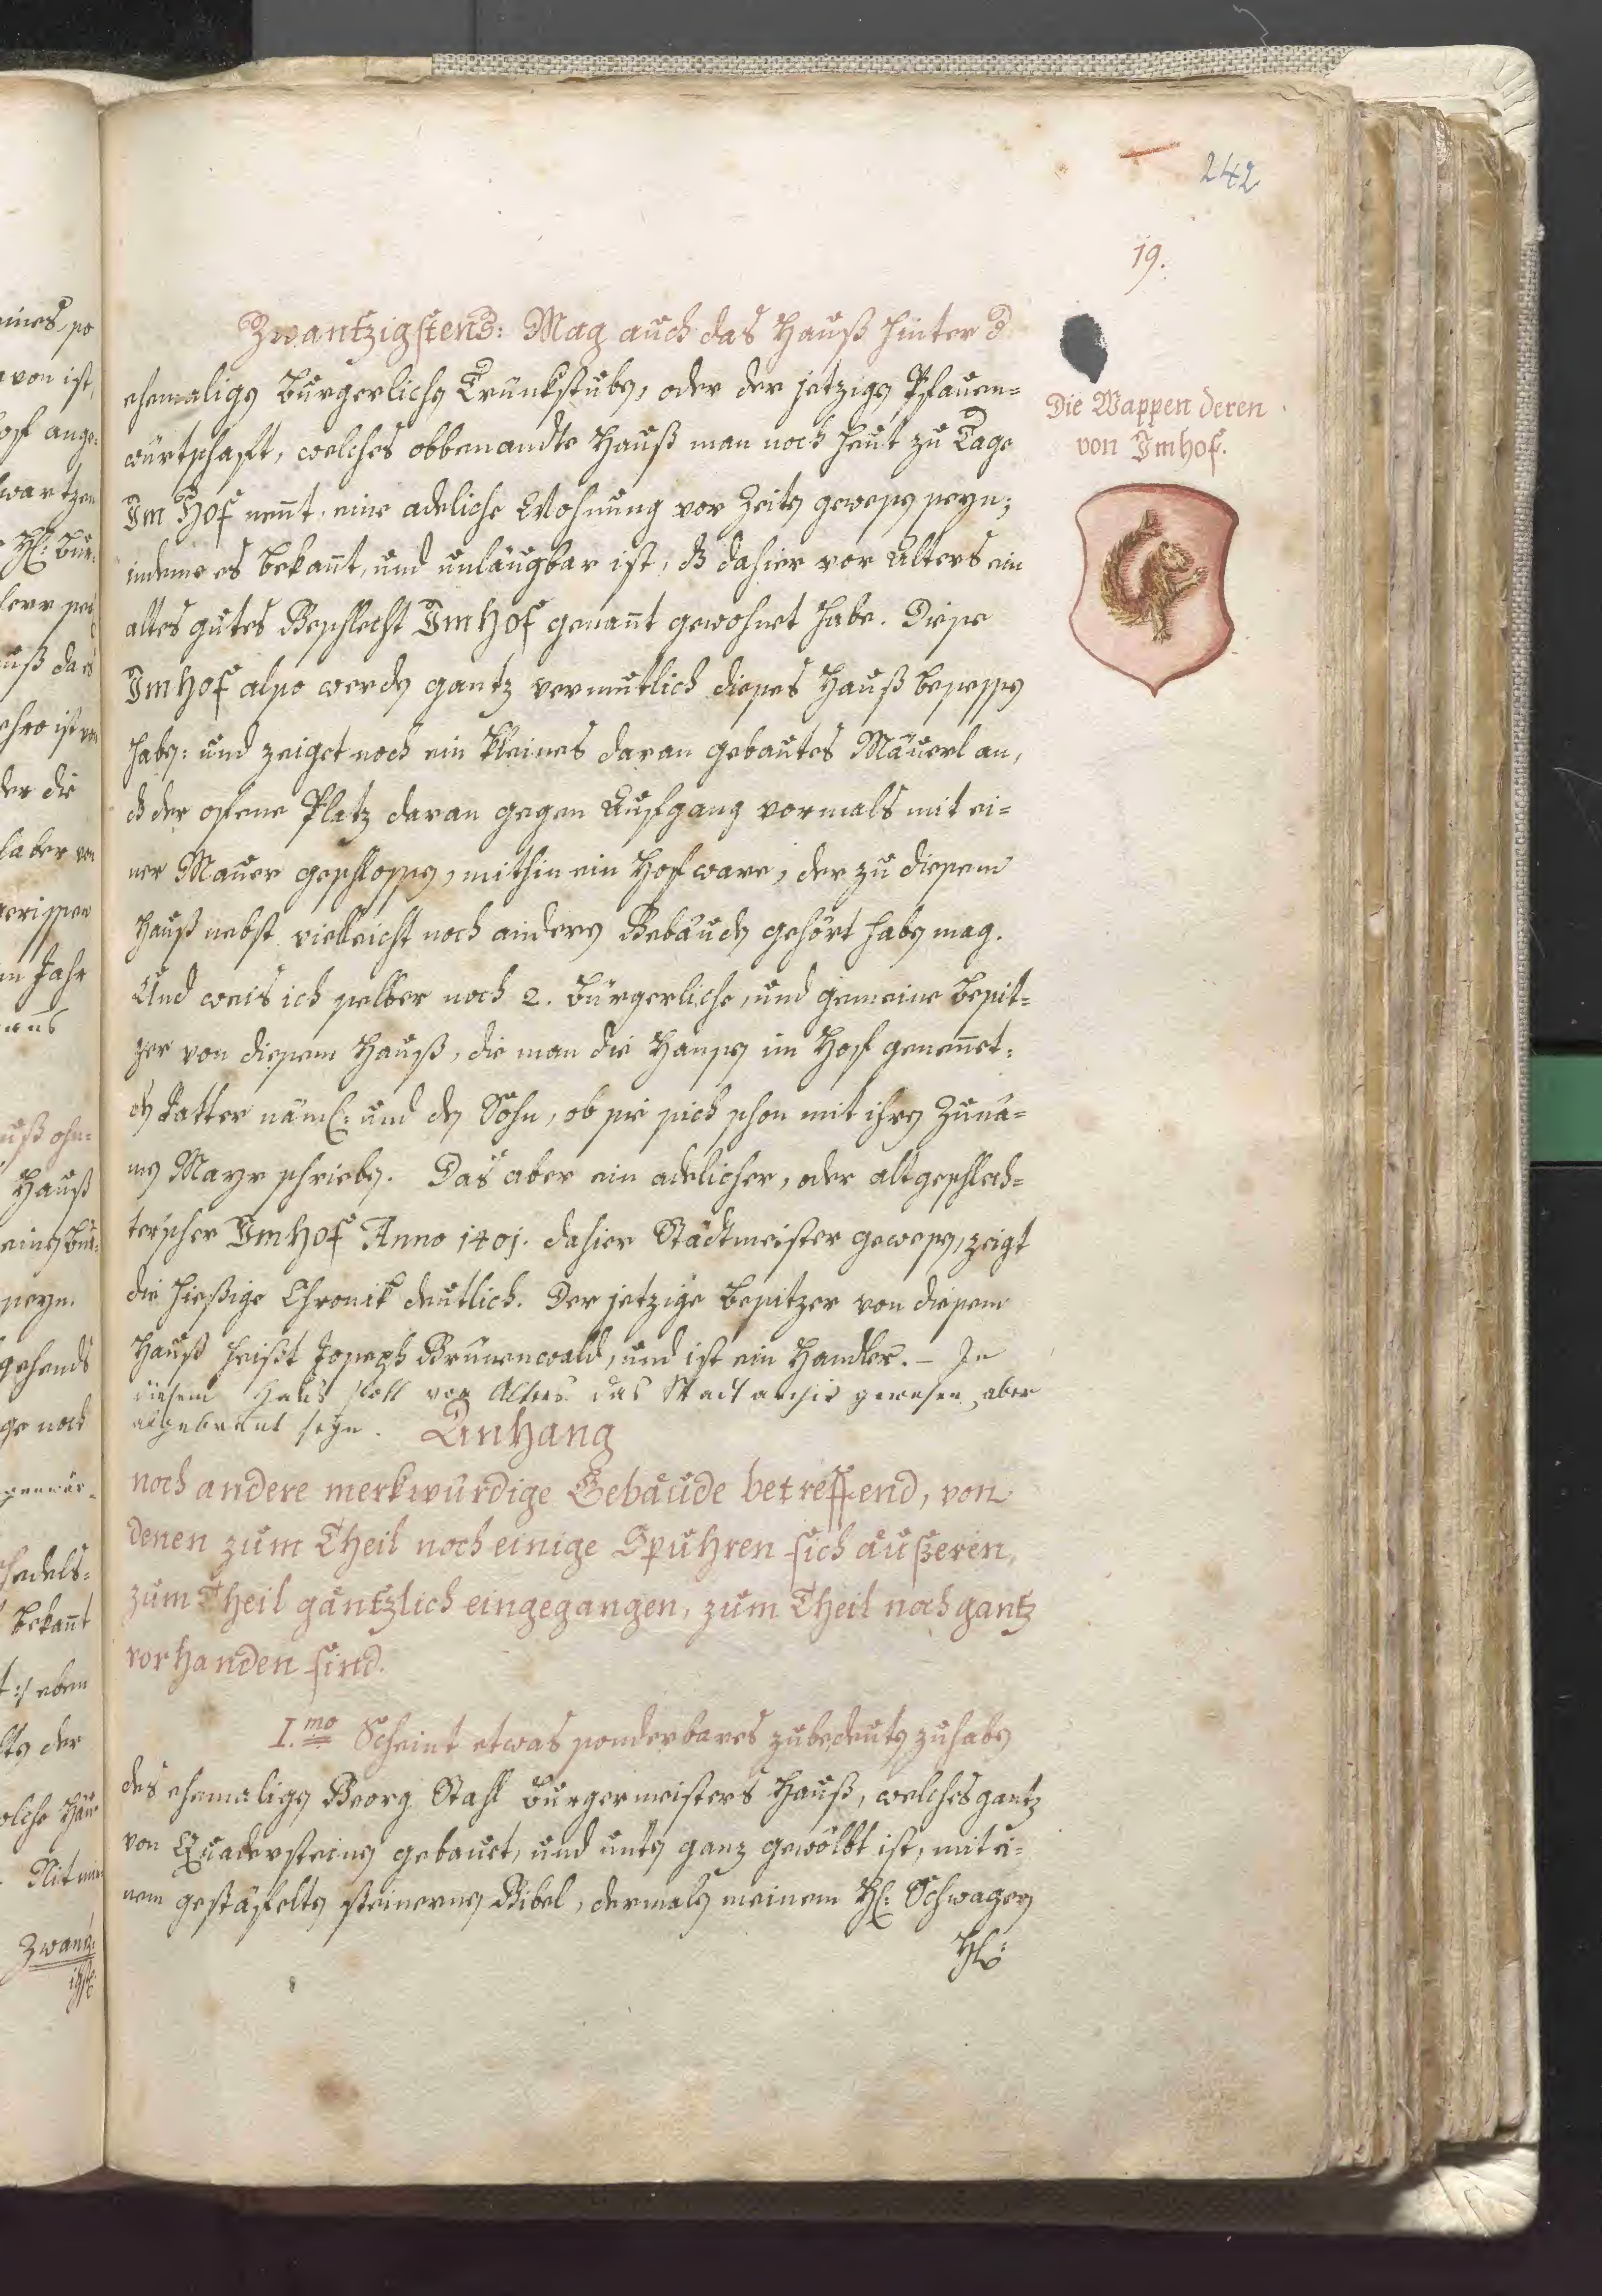 242
19.
Zwantzigstens: Mag auch das Hauß hinter d
ehemaligen Burgerlichen Trunkstuben, oder der jetzigen Pfauen=
würtschaft, welches obbenandte Hauß man noch heut zu Tage
Im Hof nen̄t, eine adeliche Wohnung vor Zeiten gewesen seyn;
indeme es bekan̄t, und unläugbar ist, dß dahier vor Alters ein
altes gutes Geschlecht Imhof genan̄t gewohnet habe. Diese
Imhof also werden gantz vermutlich dieses Hauß besessen
haben: und zeiget noch ein kleines daran gebautes Mäuerl an,
dß der offene Platz daran gegen Aufgang vormals mit ei=
ner Mauer geschlossen, mithin ein Hof ware, der zu diesem
Hauß nebst vielleicht noch anderen Gebäuden gehört haben mag.
Und weis ich selber noch 2. bürgerliche, und gemeine Besit=
zer von diesem Hauß, die man die Hansen im Hof genen̄et:
den Vatter näml: und den Sohn, ob sie sich schon mit ihren Zuna=
men Mayr schrieben. Das aber ein adelicher, oder altgeschlech=
terscher Imhof Anno 1401. dahier Stadtmeister gewesen, zeigt
die hießige Chronik deutlich. Der jetzige Besitzer von diesem
Hauß heißt Joseph Grünenwald, und ist ein Handler. – In
diesem Haus soll vor Alters das Stadt archiv gewesen, aber
abgebrant seyn.
Anhang
noch andere merkwürdige Gebäude betreffend, von
denen zum Theil noch einige Spuhren sich äußeren,
zum Theil gäntzlich eingegangen, zum Theil noch gantz
vorhanden sind.
I.mo Scheint etwas sonderbares zubedeuten zuhaben
des ehemaligen Georg Stahl Burgermeisters Hauß, welches gantz
von Quadersteinen gebauet, und unten ganz gewölbt ist, mit ei=
nem gestäfelten steinernen Gibel, dermalen meinem H: Schwager
H:
Die Wappen deren
von Imhof.